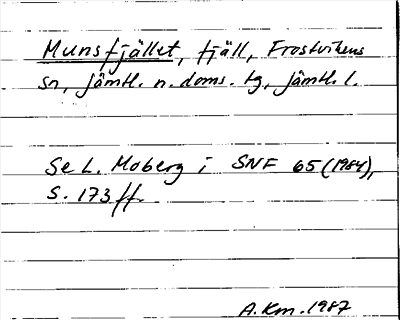 Munsfjället, fjäll, Frostvikens
sn, Jämtl. n. doms. tg, Jämtl. l.
Se L. Moberg i SNF 65 (1984),
s. 173 ff.
A. Km. 1987